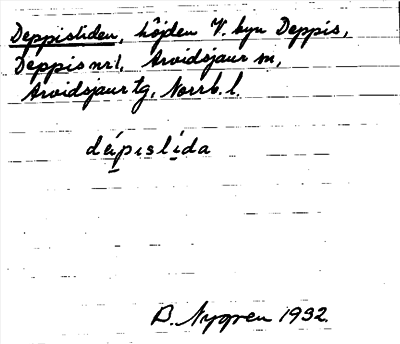 Deppisliden, höjden V. byn Deppis,
Deppis nr 1, Arvidsjaur sn,
Arvidsjaur tg, Norrb. l.
dépıslída
B. Nygren 1932.